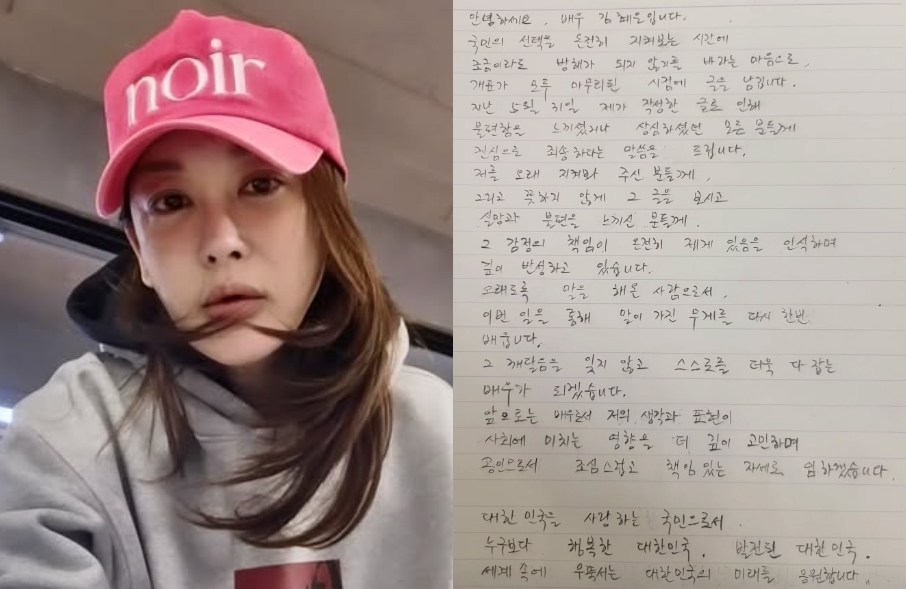 noir
안녕하세요, 배우 김혜은입니다.
국민의 선택을 온전히 지켜보는 시간에
조금이라도 방해가 되지 않기를 바라는 마음으로,
개표가 모두 마무리된 시점에 글을 남깁니다.
지난 5월 31일 제가 작성한 글로 인해
불편함을 느끼셨거나 상심하셨던 모든 분들께
진심으로 죄송하다는 말씀을 드립니다.
저를 오래 지켜봐 주신 분들께,
그리고 뜻하지 않게 그 글을 보시고
실망과 불편을 느끼신 분들께.
그 감정의 책임이 온전히 제게 있음을 인식하며
깊이 반성하고 있습니다.
오래도록 말을 해온 사람으로서,
이번 일을 통해 말이 가진 무게를 다시 한번
배웁니다.
그 깨달음을 잊지 않고 스스로를 더욱 다 잡는
배우가 되겠습니다.
앞으로는 배우로서 저의 생각과 표현이
사회에 미치는 영향을 더 깊이 고민하며
공인으로서 조심스럽고 책임있는 자세로 임하겠습니다.
대한민국을 사랑하는 국민으로서.
누구보다 행복한 대한민국, 발전된 대한민국.
세계 속에 우뚝서는 대한민국의 미래를 응원합니다.